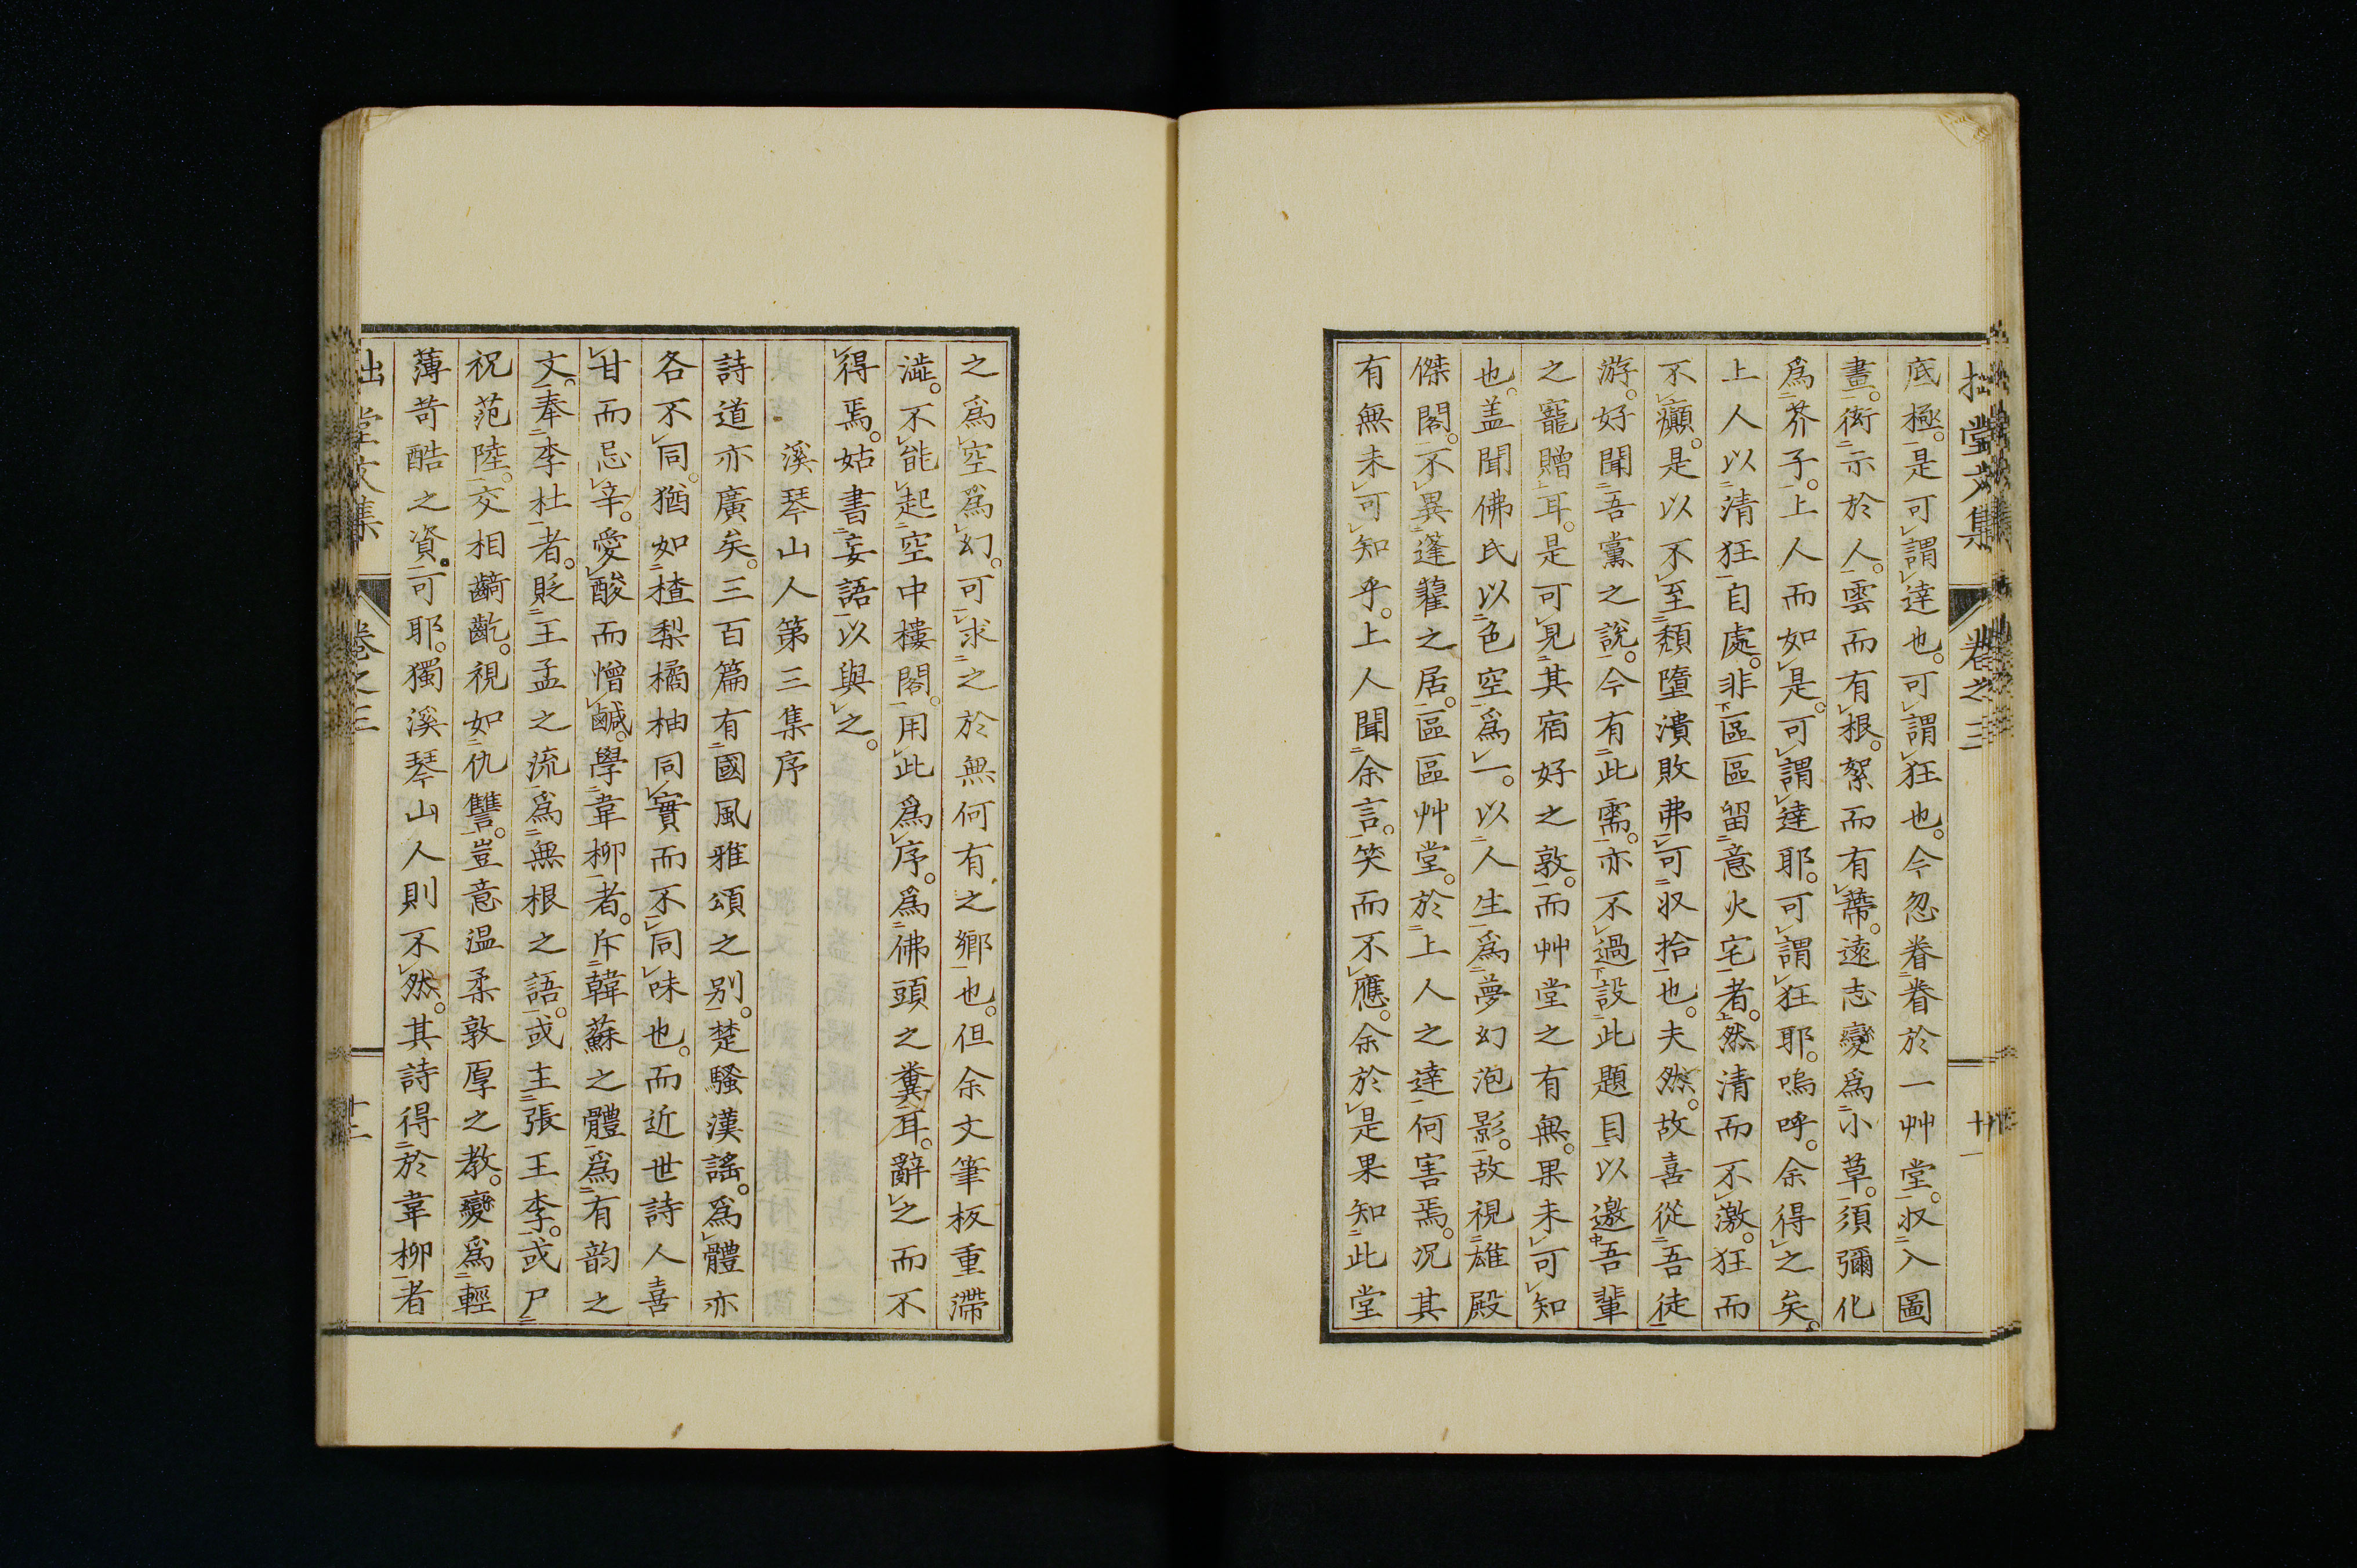 拙堂文集 卷之三 十一
底極。是可謂達也。可謂狂也。今忽眷眷於一艸堂。収入圖
畫。衒示於人。雲而有根。絮而有蔕。遠志變爲小草。須彌化
爲芥子。上人而如是。可謂達耶。可謂狂耶。嗚呼。余得之矣。
上人以清狂自處。非區區留意火宅者。然清而不激。狂而
不癲。是以不至頽墮潰敗弗可収拾也。夫然。故喜從吾徒
游。好聞吾黨之說。今有此需。亦不過設此題目以邀吾輩
之寵贈耳。是可見其宿好之敦。而艸堂之有無。果未可知
也。盖聞佛氏以色空爲一。以人生爲夢幻泡影。故視雄殿
傑閣。不異蓬藋之居。區區艸堂。於上人之達何害焉。况其
有無未可知乎。上人聞余言。笑而不應。余於是果知此堂
之爲空爲幻。可求之於無何有之鄉也。但余文筆板重滯
澁。不能起空中樓閣。用此爲序。爲佛頭之糞耳。辭之而不
得焉。姑書妄語以與之。
溪琴山人第三集序
詩道亦廣矣。三百篇有國風雅頌之别。楚騷漢謠。爲體亦
各不同。猶如楂梨橘柚同實而不同味也。而近世詩人喜
甘而忌辛。愛酸而憎鹹。學韋柳者。斥韓蘇之體爲有韵之
文。奉李杜者。貶王孟之流爲無根之語。或主張王李。或尸
祝范陸。交相齮齕。視如仇讐。豈意温柔敦厚之教。變爲輕
薄苛酷之資。可耶。獨溪琴山人則不然。其詩得於韋柳者
拙堂文集 卷之三 十二